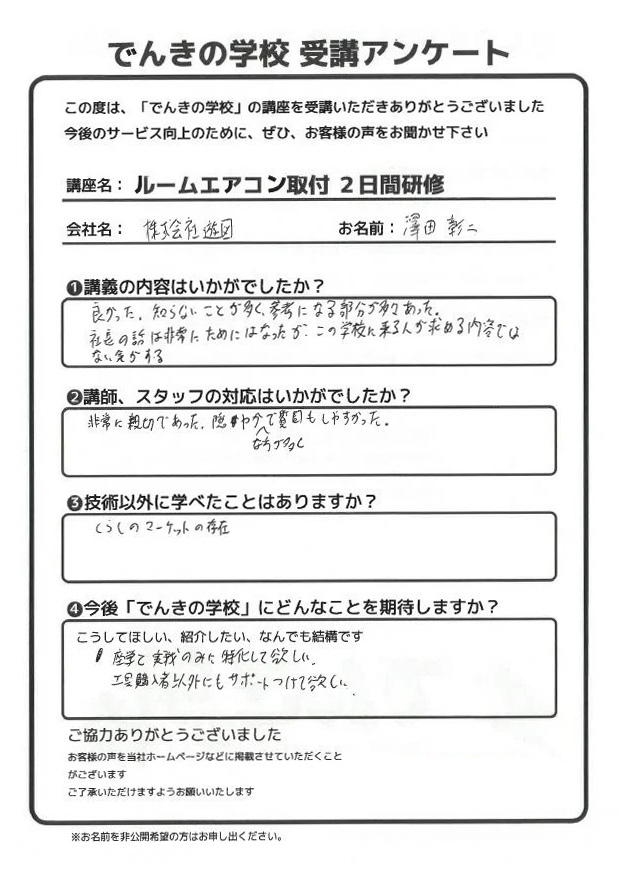 でんきの学校 受講アンケート
この度は、「でんきの学校」の講座を受講いただきありがとうございました
今後のサービス向上のために、ぜひ、お客様の声をお聞かせ下さい
講座名： ルームエアコン取付 ２日間研修
会社名： 株式会社遊図 お名前： 澤田 彰二
❶講義の内容はいかがでしたか？
良かった。知らないことが多く、参考になる部分が多々あった。
社長の話は非常にためにはなったが、この学校に来る人が求める内容では
ない気がする
❷講師、スタッフの対応はいかがでしたか？
非常に親切であった。で質問もしやすかった。
❸技術以外に学べたことはありますか？
くらしのマーケットの存在
❹今後「でんきの学校」にどんなことを期待しますか？
こうしてほしい、紹介したい、なんでも結構です
座学と実戦のみに特化して欲しい。
工具購入者以外にもサポートつけて欲しい。
ご協力ありがとうございました
お客様の声を当社ホームページなどに掲載させていただくこと
がございます
ご了承いただけますようお願いいたします
※お名前を非公開希望の方はお申し出ください。